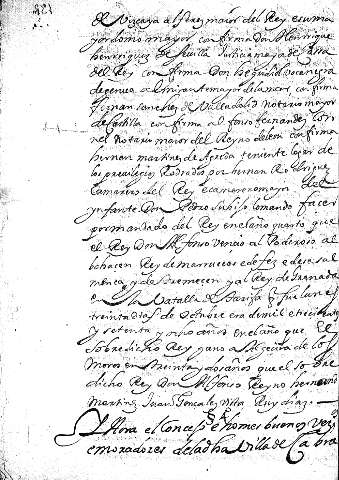 de Vizcaya alferez maior del Rey e su ma
yordomo mayor confirma Don Henrrique
henrriquez de Sevilla Justicia mayor de cassa
del Rey confirma Don Gil bocanegra
de genoua almirante mayor de la mar confirma
fernan sanchez de Valladolid notario mayor
de Castilla confirma alfonso fernandez
notario maior del Reyno de leon confirma
hernan martinez de Agreda teniente lugar de
los previlegios Rodrados por hernan Rodriguez
camarero del Rey e camarero mayor del
ynfante Don Pedro su hijo lo mando facer
por mandado del Rey en el año quarto que
el Rey Don Alfonso vencio al Poderoso al
bohacen Rey de marruecos e de fez e de
y de tremecen y al Rey de Granada
en la Batalla de Tarifa que fue lunes
treinta dias de Octubre era de mil e trecientos
y setenta y ocho años en el año que el
sobredicho Rey gano a Algecira de los
Moros en treinta y dos años que el sobre
dicho Rey Don Alfonso Reyno hernan
Martinez Juan Gonzalez Vista Ruy diaz
Ahora el Concejo e homes buenos vezos
e moradores de la dha Villa de Cabra